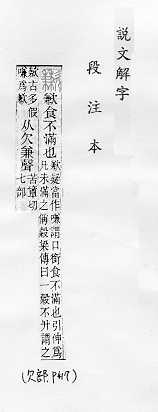 説文解字
段注本
歉食不滿也
歉疑當作嗛謂口銜食不滿也引伸爲
凡未滿之偁穀梁傳曰一穀不升謂之
歉古多假
嗛爲歉
从欠兼聲
苦簟切
七部
(欠部.P417)